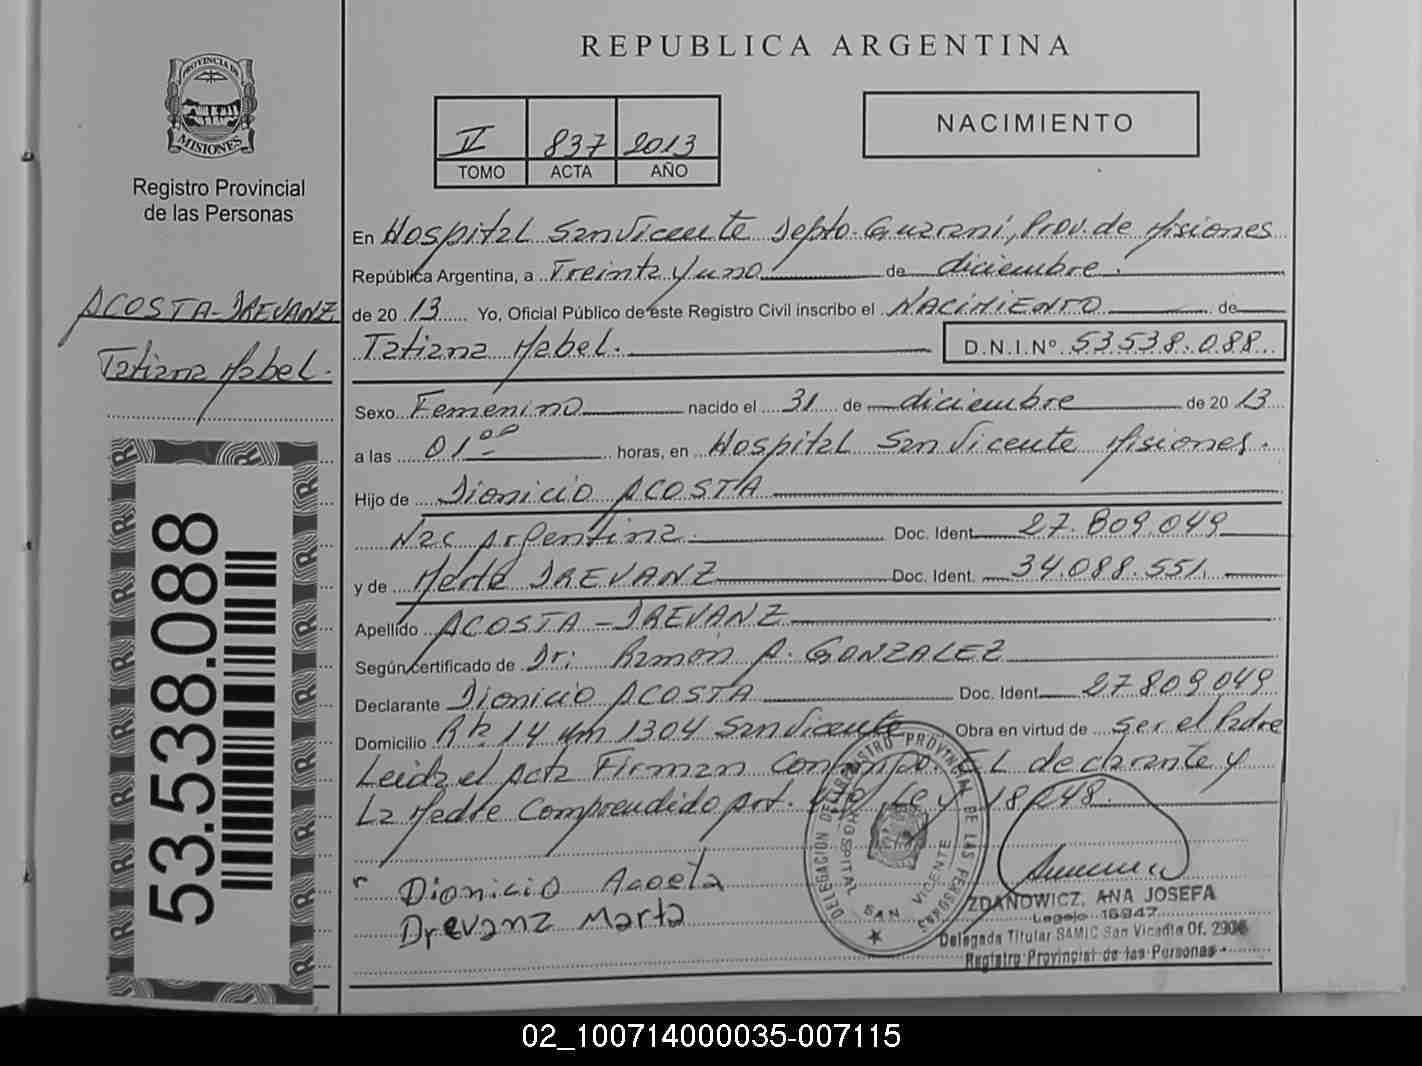 REPUBLICA ARGENTINA
PROVINCIA DE
MISIONES
Registro Provincial
de las Personas
V 837 2013
TOMO ACTA AÑO
NACIMIENTO
ACOSTA-DREVANZ
Tatiana Mabel.
53.538.088
En Hospital San Vicente Depto Guarani, Prov. de Misiones
República Argentina, a Treinta y uno de diciembre.
de 20 13 Yo, Oficial Público de este Registro Civil inscribo el NACIMIENTO de
Tatiana Mabel. D.N.I.Nº 53538.088
Sexo Femenino nacido el 31 de diciembre de 20 13
a las 01 00 horas, en Hospital San Vicente Misiones.
Hijo de Dionicio ACOSTA
Nac Argentina. Doc. Ident. 27.809.049
y de Marta DREVANZ Doc. Ident. 34.088.551
Apellido ACOSTA-DREVANZ
Según certificado de Dr: Ramón A. GONZALEZ
Declarante Dionicio ACOSTA Doc. Ident. 27809049
Domicilio Rta. 14 km 1304 San Vicente Obra en virtud de ser el Padre
Leida el Acta Firman Conmigo. EL declarante y
La Madre Comprendido Art. Ley 18.248.
DELEGACION DEL REGISTRO PROVINCIAL DE LAS PERSONAS
HOSPITAL SAN VICENTE
Dionicio Acosta
Drevanz Marta
ZDANOWICZ, ANA JOSEFA
Legajo 16947
Delegada Titular SAMIC San Vicente Of. 2906
Registro Provincial de las Personas
02_100714000035-007115